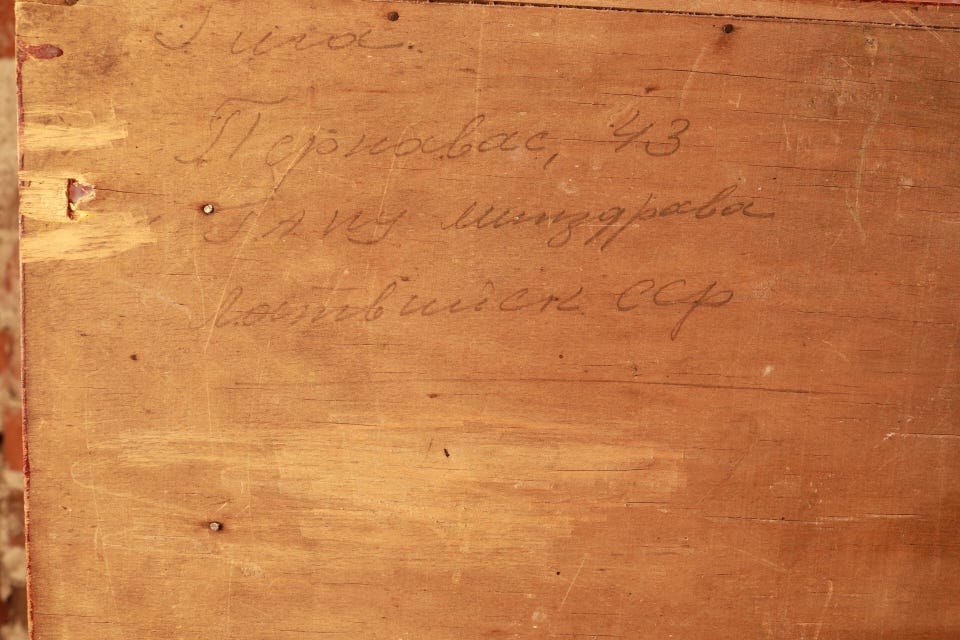 Рига.
Пернавас, 43
ГАПУ минздрава
Латвийск ССР